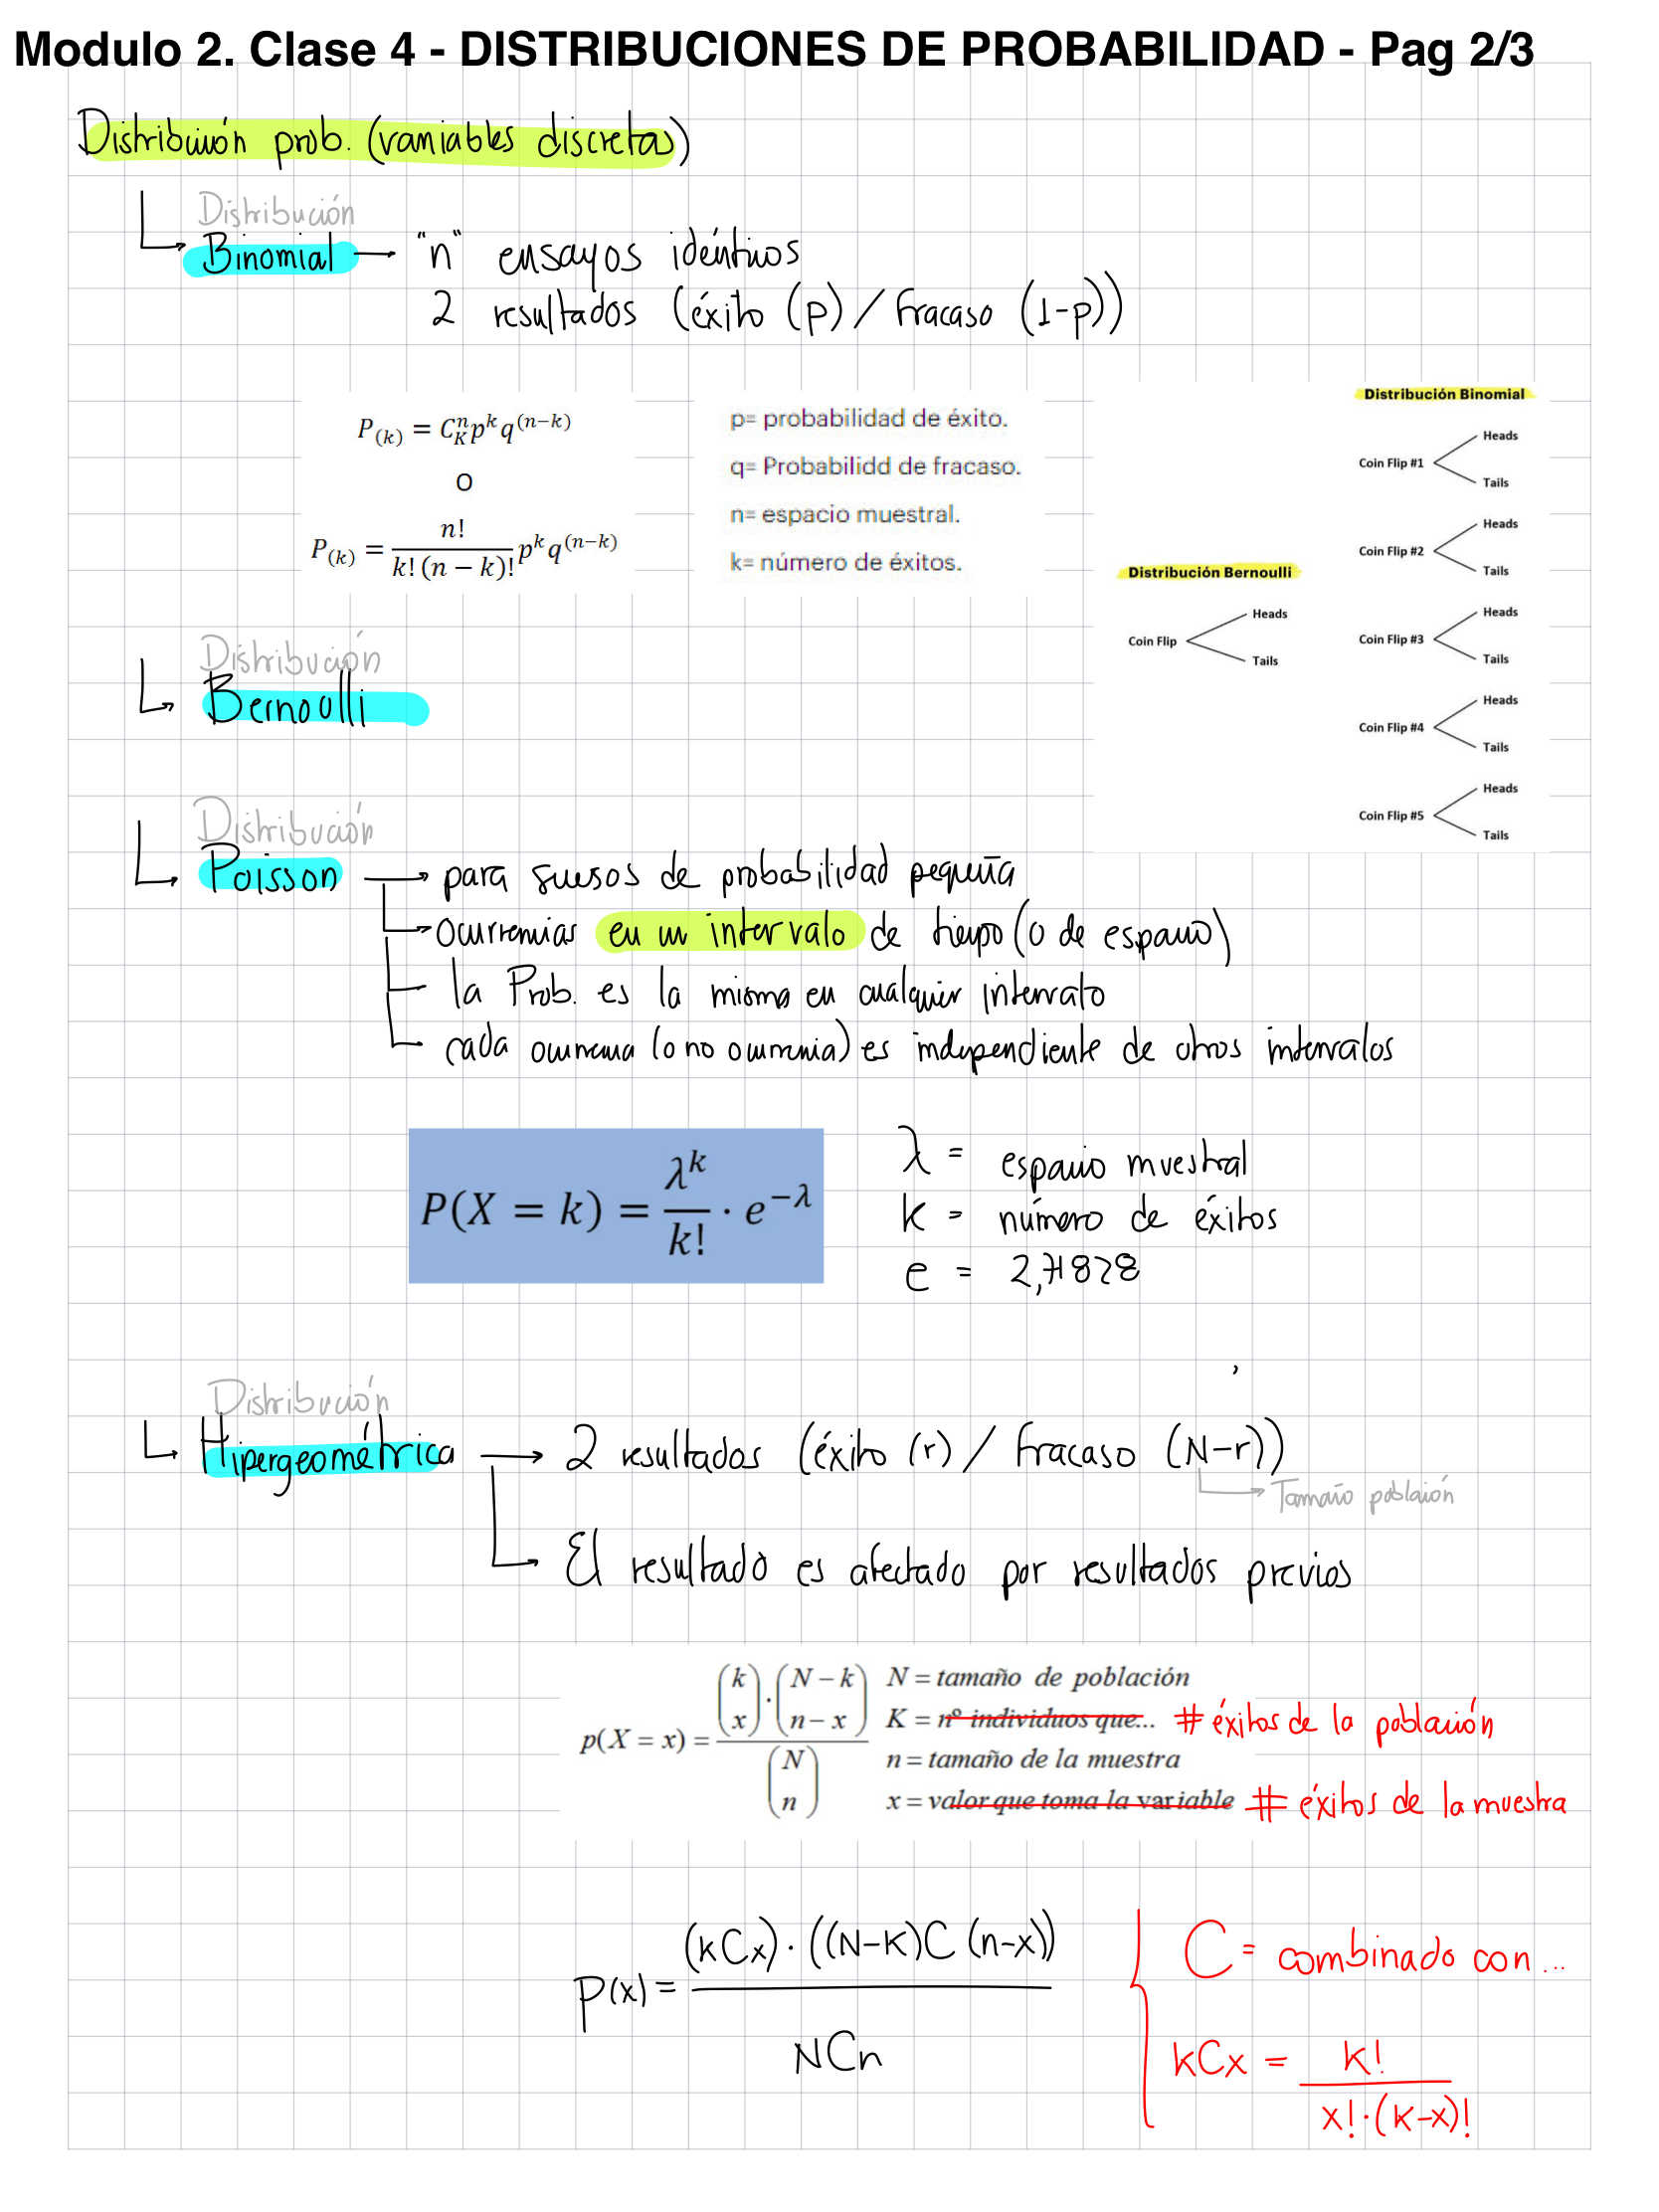 Modulo 2. Clase 4 - DISTRIBUCIONES DE PROBABILIDAD - Pag 2/3
Distribución prob. (variables discretas)
Distribución
Binomial → "n" ensayos idénticos
2 resultados (éxito (p) / fracaso (1-p))
P(k) = C^n_K p^k q^(n−k)
O
P(k) = n! / k! (n − k)! p^k q^(n−k)
p= probabilidad de éxito.
q= Probabilidd de fracaso.
n= espacio muestral.
k= número de éxitos.
Distribución Bernoulli
Coin Flip
Heads
Tails
Distribución Binomial
Coin Flip #1
Heads
Tails
Coin Flip #2
Heads
Tails
Coin Flip #3
Heads
Tails
Coin Flip #4
Heads
Tails
Coin Flip #5
Heads
Tails
Distribución
Bernoulli
Distribución
Poisson → para sucesos de probabilidad pequeña
ocurrencias en un intervalo de tiempo (o de espacio)
la Prob. es la misma en cualquier intervalo
cada ocurrencia (o no ocurrencia) es independiente de otros intervalos
P(X = k) = λ^k / k! · e^−λ
λ = espacio muestral
k = número de éxitos
e = 2,71828
Distribución
Hipergeométrica → 2 resultados (éxito (r) / fracaso (N-r))
Tamaño población
El resultado es afectado por resultados previos
p(X = x) = (k x) · (N − k n − x) / (N n)
N = tamaño de población
K = nº individuos que... # éxitos de la población
n = tamaño de la muestra
x = valor que toma la variable # éxitos de la muestra
P(x) = (kCx) · ((N-K)C (n-x)) / NCn
C = combinado con...
kCx = K! / x! · (K-x)!